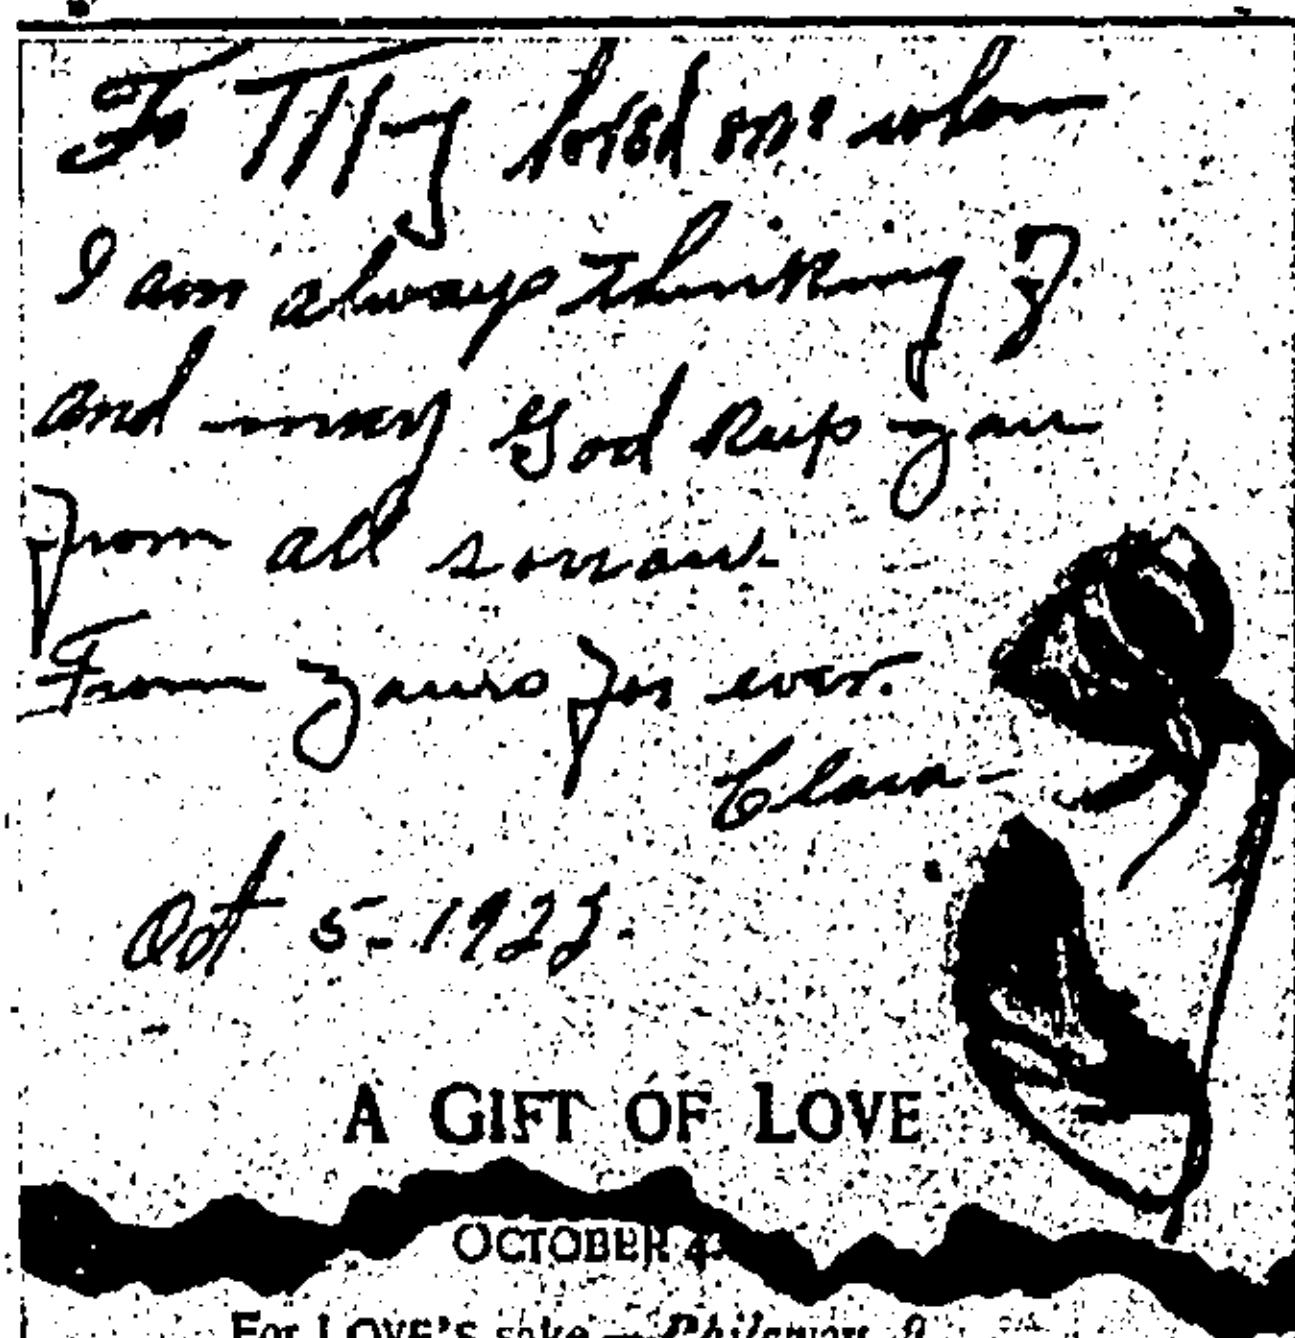 To My loved one whom
I am always thinking of
and may God keep you
from all sorrow
From yours for ever.
Clara
Oct 5-1922
A GIFT OF LOVE
OCTOBER 4
For LOVE'S sake — Philemon 9